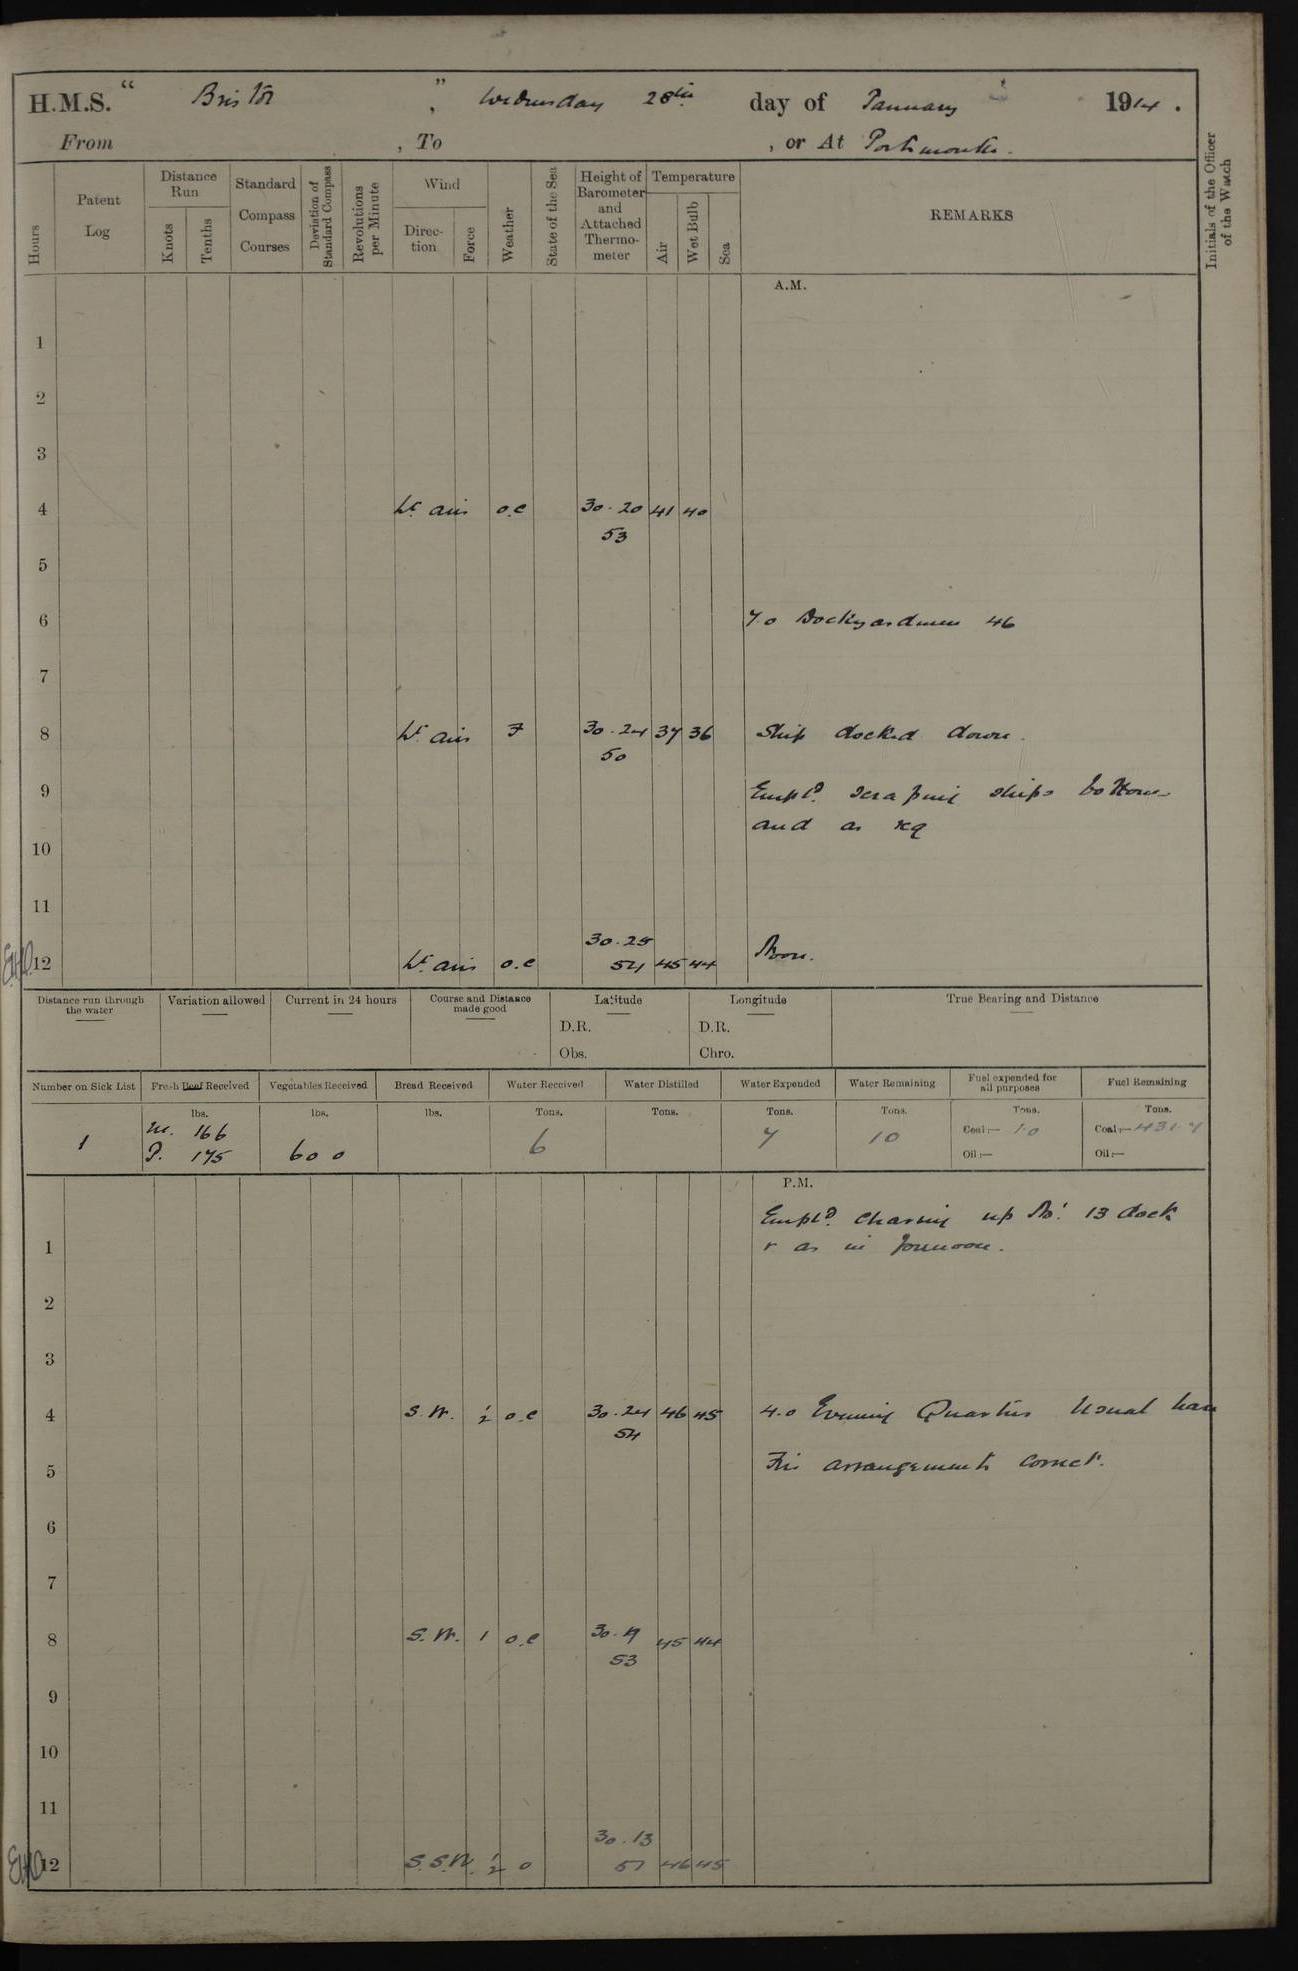 H.M.S. " Bristol ", Wednesday 28th day of January 1914.
From , To , or At Portsmouth.
Hours Patent Log Distance Run Knots Tenths Standard Compass Courses Deviation of Standard Compass Revolutions per Minute Wind Direc-tion Force Weather State of the Sea Height of Barometer and Attached Thermo-meter Temperature Air Wet Bulb Sea REMARKS Initials of the Officer of the Watch
A.M.
1
2
3
4 Lt airs o.c 30.20 41 40
53
5
6 7.0 Dockyardmen 46
7
8 Lt airs F 30.24 37 36 Ship docked down.
50
9 Empld. scraping ships bottom
and as req
10
11
30.25
12 Lt airs o.c 54 45 44 Noon.
Distance run through the water Variation allowed Current in 24 hours Course and Distance made good Latitude Longitude True Bearing and Distance
D.R. D.R.
Obs. Chro.
Number on Sick List Fresh Beef Received Vegetables Received Bread Received Water Received Water Distilled Water Expended Water Remaining Fuel expended for all purposes Fuel Remaining
lbs. lbs. lbs. Tons. Tons. Tons. Tons. Tons. Tons.
1 M. 166 6 7 10 Coal:— 10 Coal:— 431.7
P. 175 600 Oil:— Oil:—
P.M.
Empld. clearing up No. 13 dock
1 & as in forenoon.
2
3
4 S.W. 1/2 o.c 30.24 46 45 4.0 Evening Quarters Usual
54
5 Fire arrangements correct.
6
7
8 S.W. 1 o.c 30. 45 44
53
9
10
11
30.13
12 S.S.W. 1/2 o 51 46 45